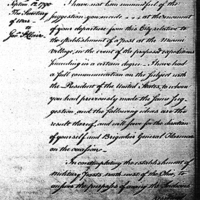 Septem 12, 1790
The Secretary
of War
Gen. St Clair
I have not been unmindful of the
suggestion you made . . . at the moment
of your departure from this City relative to
the establishment of a post at the Miami
village, in the event of the proposed expeditions
succeeding in a certain degree. I have had
a full communication on the subject with
the President of the United States, to whom
you had previously made the same sug-
gestion and the following ideas are the
result thereof, and will form for the direction
of yourself and Brigadier General Harmar
on the occasion.
In contemplating the establishment of
military posts north west of the Ohio, to
answer the purposes of awing the Indians